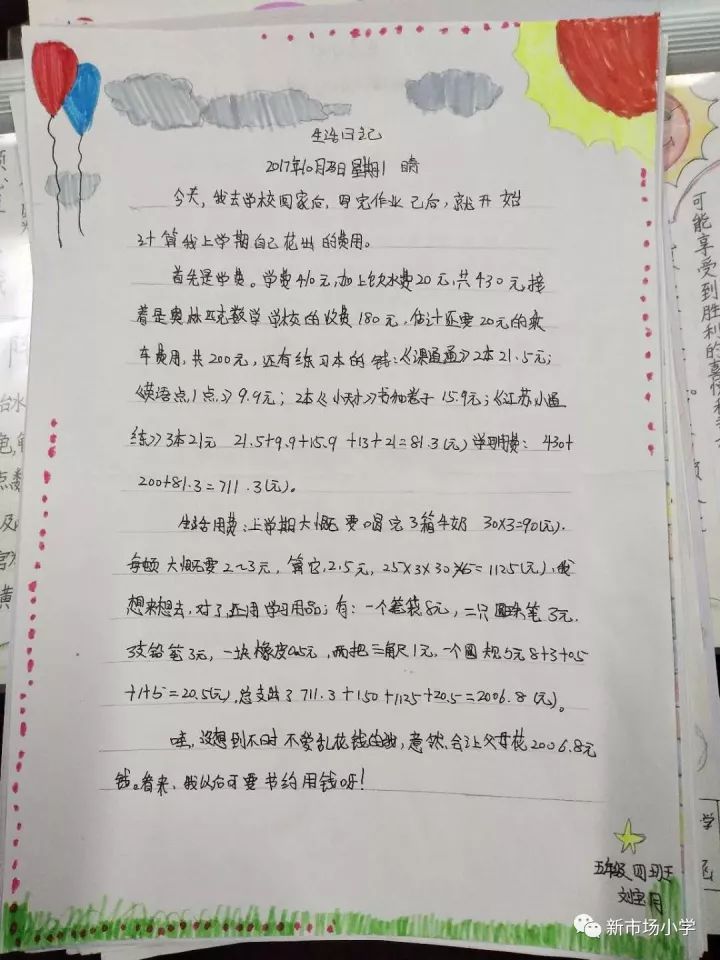 生活日记
2017年10月日星期1 晴
今天,我去学校回家后,写完作业已后,就开始
计算我上学期自己花出的费用。
首先是学费。学费410元,加上饮水费20元,共430元,接
着是奥林匹克数学学校的收费180元,估计还要20元的乘
车费用,共200元,还有练习本的钱:《课通通》2本21.5元;
《英语点1点》9.9元;2本《小》书和卷子15.9元;《江苏小题
练》3本21元 21.5+9.9+15.9+13+21=81.3(元)学习用费:430+
200+81.3=711.3(元)。
生活用费:上学期大慨要喝完3箱牛奶 30×3=90(元).
每顿大慨要2~3元,算它2.5元,25×3×30×5=1125(元),我
想来想去,对了,还用学习用品;有:一个笔袋8元,二只圆珠笔3元.
3支铅笔3元,一块橡皮0.5元,两把三角尺1元,一个圆规5元8+3+0.5
+1+5=20.5(元),总支出了711.3+150+1125+20.5=2006.8(元)。
哇,没想到不时不爱乱花钱的我,竟然会让父母花2006.8元
钱。看来,我以后可要节约用钱呀!
五年级四班
刘宝月
新市场小学
可能享受到胜利的喜悦